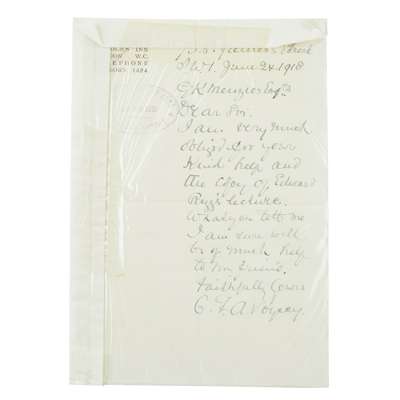 ON W.C.
EPHONE
1484
St, James's Street
S.W.1. June 24. 1918
G K Menzies Esq
Dear Sir.
I am very much
obliged for your
kind help and
the copy of Edward
lecture.
What you tell me
I am sure will
be of much help
to my friend.
Faithfully yours
C. F. A. Voysey